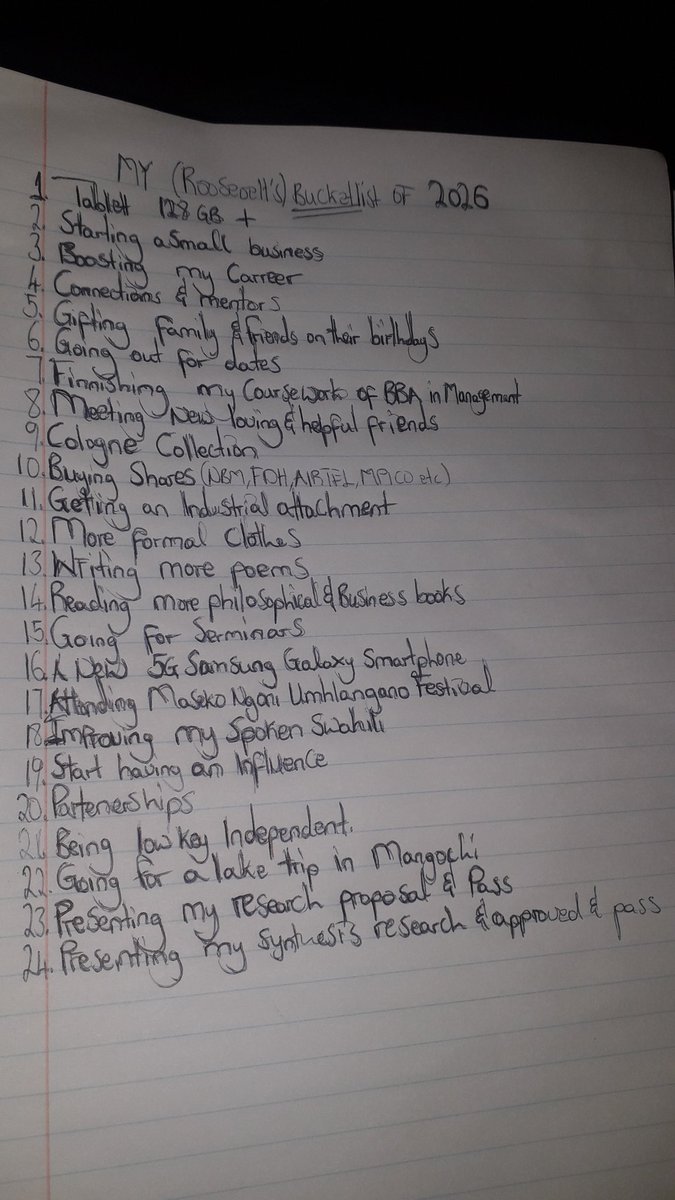 MY (Roosevelt's) Bucketlist OF 2026
1. Tablett 128 GB +
2. Starting a small business
3. Boosting my Carreer
4. Connections & mentors
5. Gifting family & friends on their birthdays
6. Going out for dates
7. Finnishing my Coursework of BBA in Management
8. Meeting New loving & helpful friends
9. Cologne Collection
10. Buying Shares (NBM, FDH, AIRTEL, MPICO etc)
11. Getting an Industrial attachment
12. More formal Clothes
13. Writing more poems
14. Reading more philosophical & Business books
15. Going for Serminars
16. A New 5G Samsung Galaxy Smartphone
17. Attending Maseko Ngoni Umhlangano Festival
18. Improving my spoken Swahili
19. Start having an Influence
20. Partenerships
21. Being lowkey Independent.
22. Going for a lake trip in Mangochi
23. Presenting my research proposal & Pass
24. Presenting my synthesis research & approved & pass